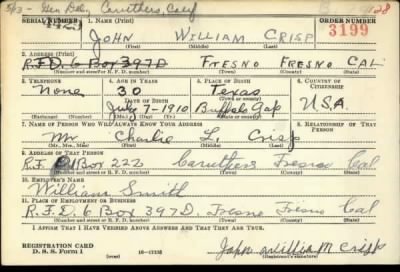 5/3 - Gen. Del., Caruthers, Calif
SERIAL NUMBER 1. NAME (Print) ORDER NUMBER
JOHN WILLIAM CRISP 3199
(First) (Middle) (Last)
2. ADDRESS (Print)
R.F.D. 6 BOX 397D. FRESNO FRESNO CAL
(Number and street or R. F. D. number) (Town) (County) (State)
3. TELEPHONE 4. AGE IN YEARS 5. PLACE OF BIRTH 6. COUNTRY OF CITIZENSHIP
None 30 Texas
DATE OF BIRTH
July 7-1910 Buffalo Gap U.S.A
(Exchange) (Number) (Mo.) (Day) (Yr.) (State or country)
7. NAME OF PERSON WHO WILL ALWAYS KNOW YOUR ADDRESS RELATIONSHIP OF THAT PERSON
Mr. Charlie L. Crisp
(Mr., Mrs., Miss) (First) (Middle) (Last)
8. ADDRESS OF THAT PERSON
R.F. Box 222 Caruthers Fresno Cal
(Number and street or R. F. D. number) (Town) (County) (State)
10. EMPLOYER'S NAME
William Smith
11. PLACE OF EMPLOYMENT OR BUSINESS
R.F.D. 6 Box 397D. Fresno Fresno Cal
(Number and street or R. F. D. number) (Town) (County) (State)
I AFFIRM THAT I HAVE VERIFIED ABOVE ANSWERS AND THAT THEY ARE TRUE.
REGISTRATION CARD
D. S. S. Form 1 (over) John William Crisp
(Registrant's signature)